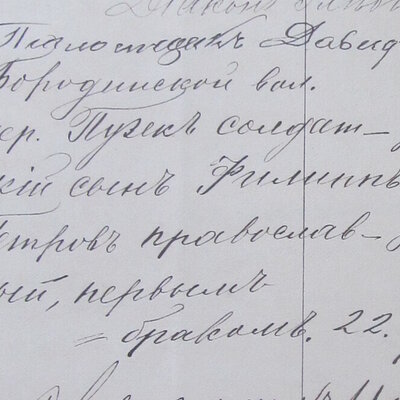 Псаломщикъ Давид
Бородинской вол.
ер. Пузекъ солдат-
кій сынъ Филиппъ
Петровъ православ-
ый, первымъ
= бракомъ. 22.